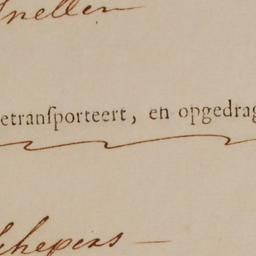 Snellen
etransporteert, en opgedrag
Schepers —